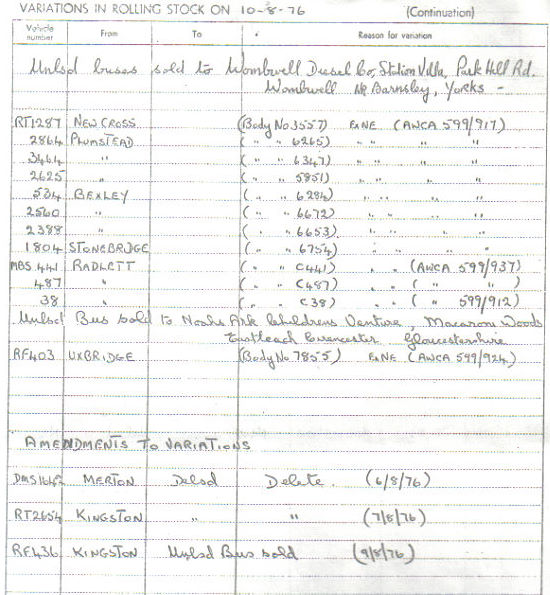 VARIATIONS IN ROLLING STOCK ON 10-8-76 (Continuation)
Vehicle number From To Reason for variation
Unlsd buses sold to Wombwell Diesel Co, Station Villa, Park Hill Rd.
Wombwell Nr Barnsley, Yorks -
RT1287 NEW CROSS (Body No 3557) FANE (AWCA 599/917)
2864 PLUMSTEAD ( " " 6265) " " " "
3464 " ( " " 6347) " " " "
2625 " ( " " 5851) " " " "
534 BEXLEY ( " " 6284) " " " "
2560 " ( " " 6672) " " " "
2388 " ( " " 6653) " " " "
1804 STONEBRIDGE ( " " 6754) " " " "
MBS 441 RADLETT ( " " C441) " " (AWCA 599/937)
487 " ( " " C487) " " ( " " )
38 " ( " " C38) " " ( " 599/912)
Unlsd Bus sold to Noahs Ark Childrens Venture, Macaroni Woods
Eastleach Cirencester Gloucestershire
RF403 UXBRIDGE (Body No 7855) FANE (AWCA 599/924)
AMENDMENTS TO VARIATIONS
DMS1642 MERTON Delsd Delete. (6/8/76)
RT2654 KINGSTON " " (7/8/76)
RF436 KINGSTON Unlsd Bus sold (9/8/76)